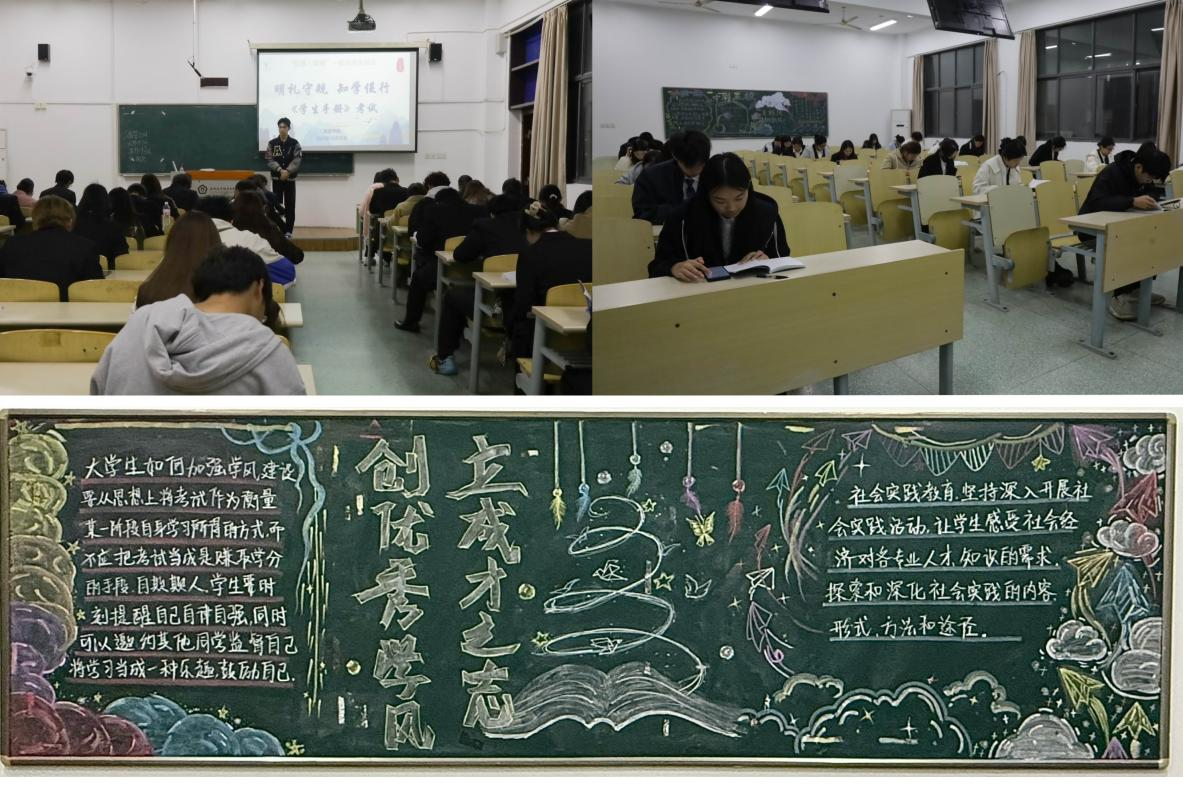 明礼守规 知学慎行
《学生手册》考试
大学生如何加强学风建设
要从思想上将考试作为衡量
某一阶段自身学习所得的方式,而
不应把考试当成是赚取学分
的手段,自欺欺人,学生要时
刻提醒自己自律自强,同时
可以邀约其他同学监督自己
将学习当成一种乐趣,鼓励自己.
立成才之志
创优秀学风
社会实践教育,坚持深入开展社
会实践活动,让学生感受社会经
济对各专业人才、知识的需求
探索和深化社会实践的内容、
形式、方法和途径.